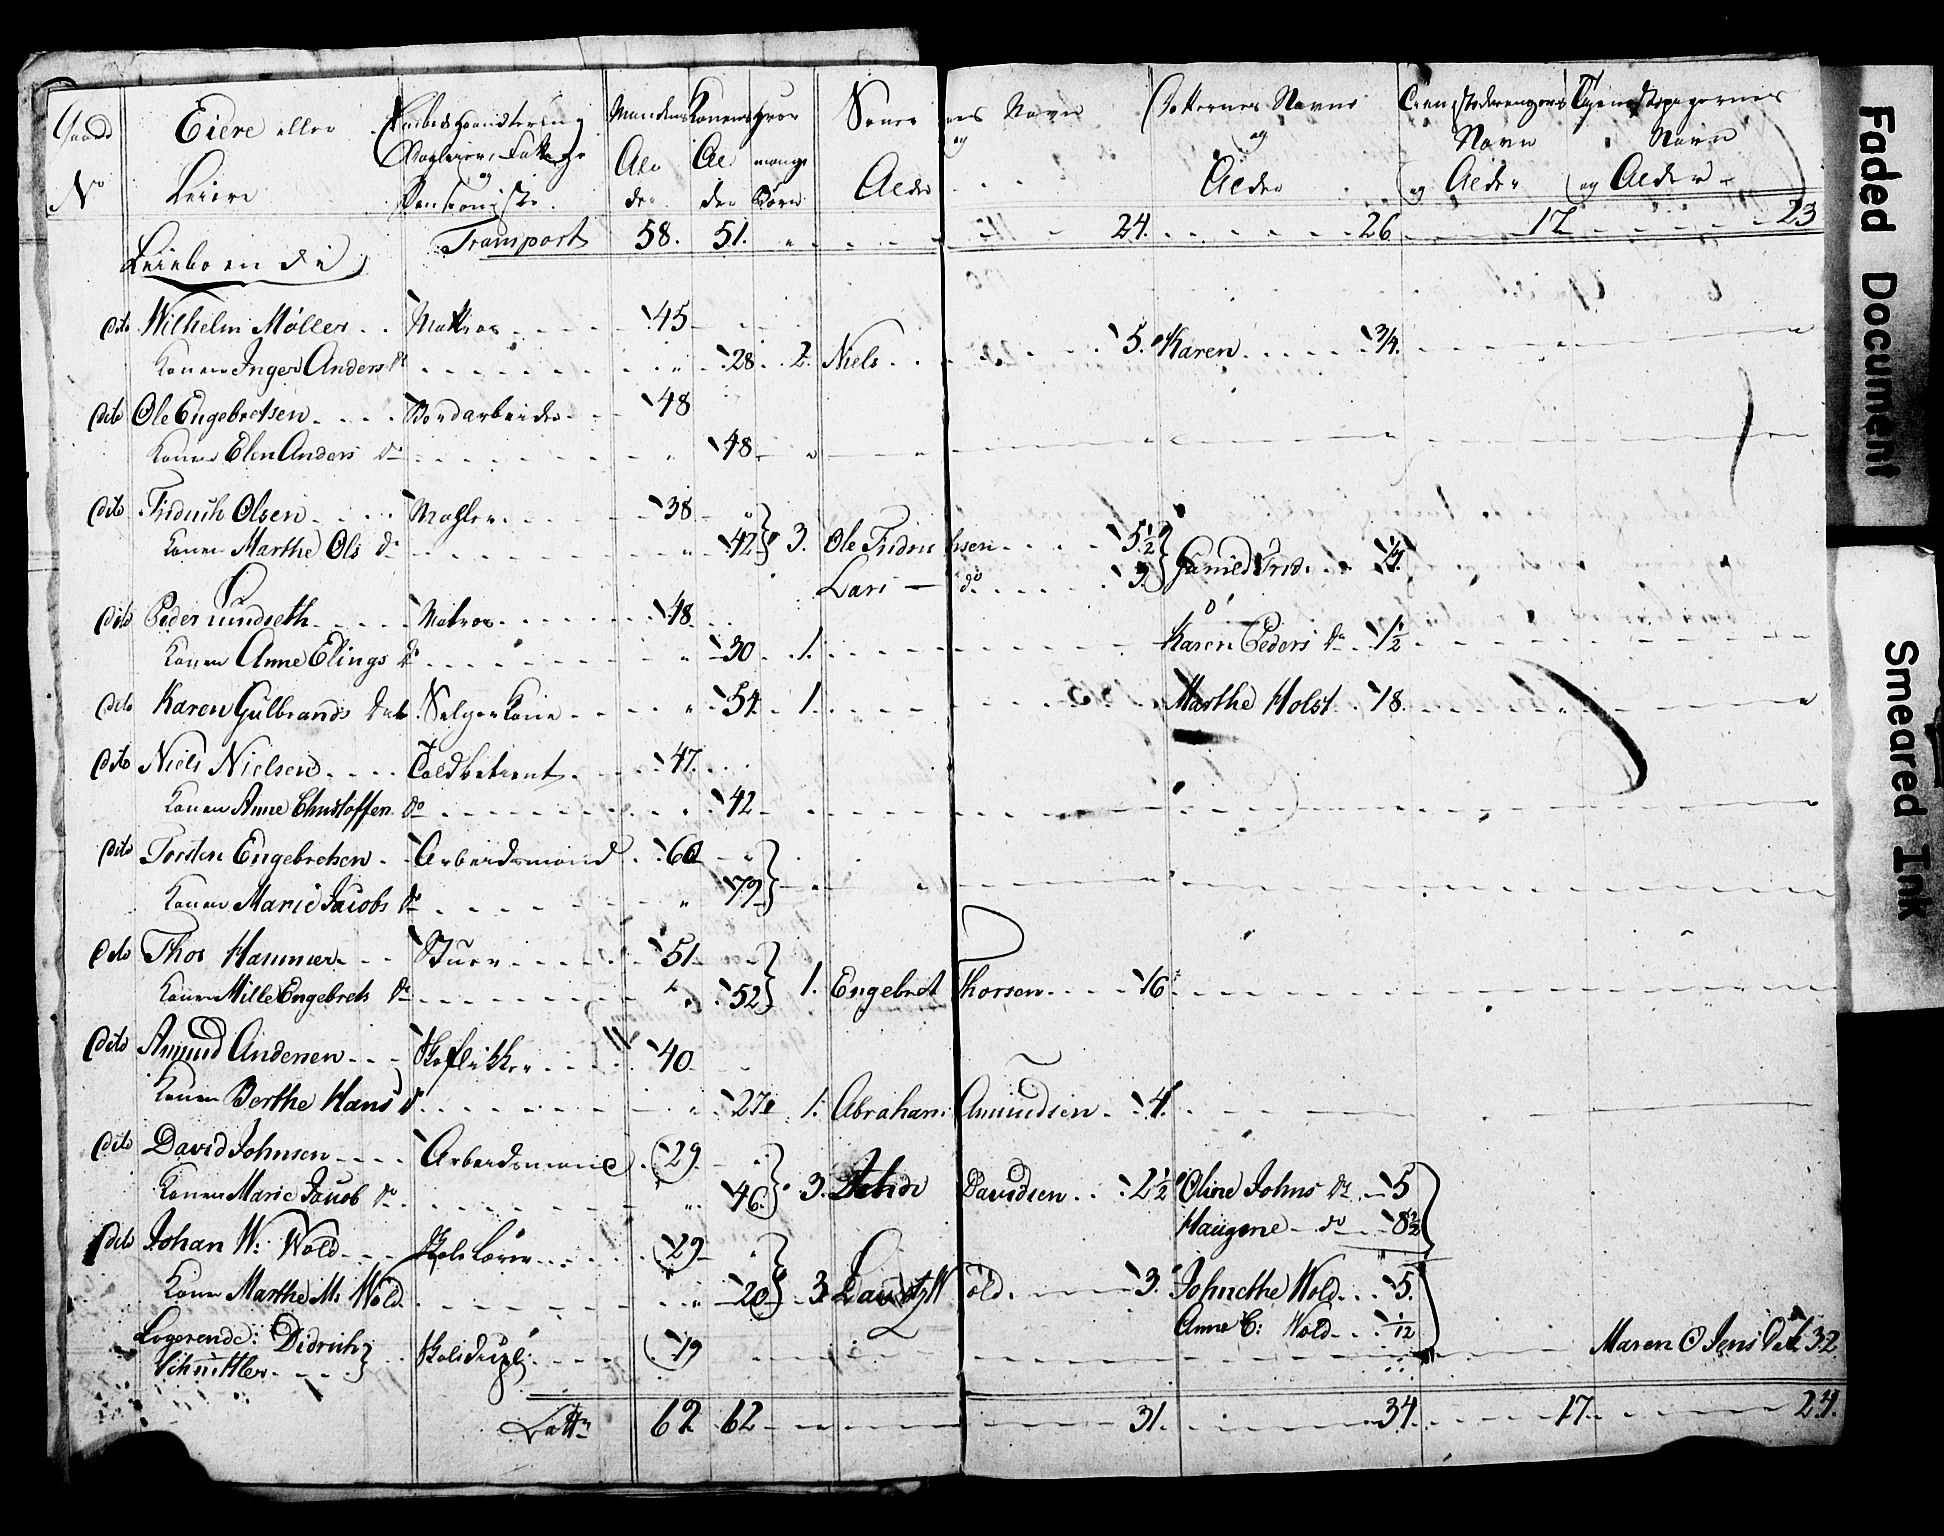 Gaard Eiere eller Mandens Konens hvor Sønnernes Navn Døttrernes Navne Tienestedrengens Tienestepigernes
No Leiere Al der Al der mange Børn og Alder og Alder Navn og Alder Navn og Alder
Transport 58. 51. 24. 26 17 23
Leieboende
dito Wilhelm Møller Matros 45
Konen Inger Anders do 28 2. Niels 5. Karen 3/4.
dito Ole Engebretsen Bordarbeider 48
Konen Elen Anders do 48
dito Fridrich Olsen Mahler 38
Konen Marthe Ols do 42 3. Ole Fridrichsen 5½
Lars do 3. Frid. 1/4
dito Peder Matros 48
Konen Anne Elings do 30 1. Karen Peders do 1½
dito Karen Gulbrands Datr Selgerkone 54 1. Marthe Holst 18.
dito Niels Nielsen Toldbetient 47
Konen Anne Christoffer do 42
dito Torsten Engebretsen Arbeidsmand 60
Konen Marie Jacobs do 79
dito Thor Hammer Stuer 51
Konen Mille Engebrets do 52 1. Engebret Thorsen 16
dito Amund Andersen Skoflikker 40
Konen Berthe Hans d 27 1. Abraham Amundsen 4.
dito David Johnsen Arbeidsmand 29
Konen Marie Jacob do 46 3. Davidsen 2½ Oline Johns do 5
Haugene do 8½
dito Johan W: Wold Skolelærer 29
Konen Marthe M. Wold 20 3 Lauritz Wold 3. Johnethe Wold 5.
Anne C: Wold 1/12
Logerende: Didrich Skoledicipl: 19 Maren O Jens Datr 32
Schnittler
Latus 62 62 31. 34. 17. 24.
Faded Document
Smeared Ink